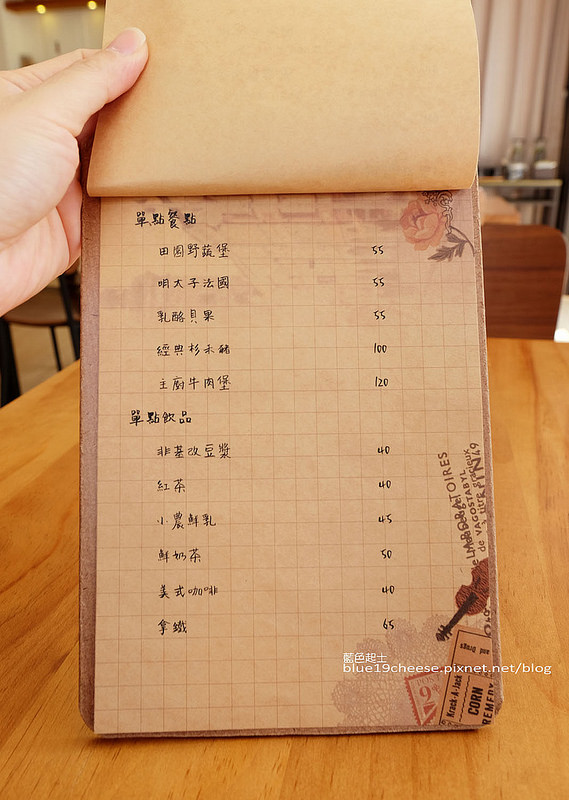 單點餐點
田園野蔬堡 55
明太子法國 55
乳酪貝果 55
經典杉禾豬 100
主廚牛肉堡 120
單點飲品
非基改豆漿 40
紅茶 40
小農鮮乳 45
鮮奶茶 50
美式咖啡 40
拿鐵 65
藍色起士
blue19cheese.pixnet.net/blog
Krack-A-Jack
CORN
REMEDY